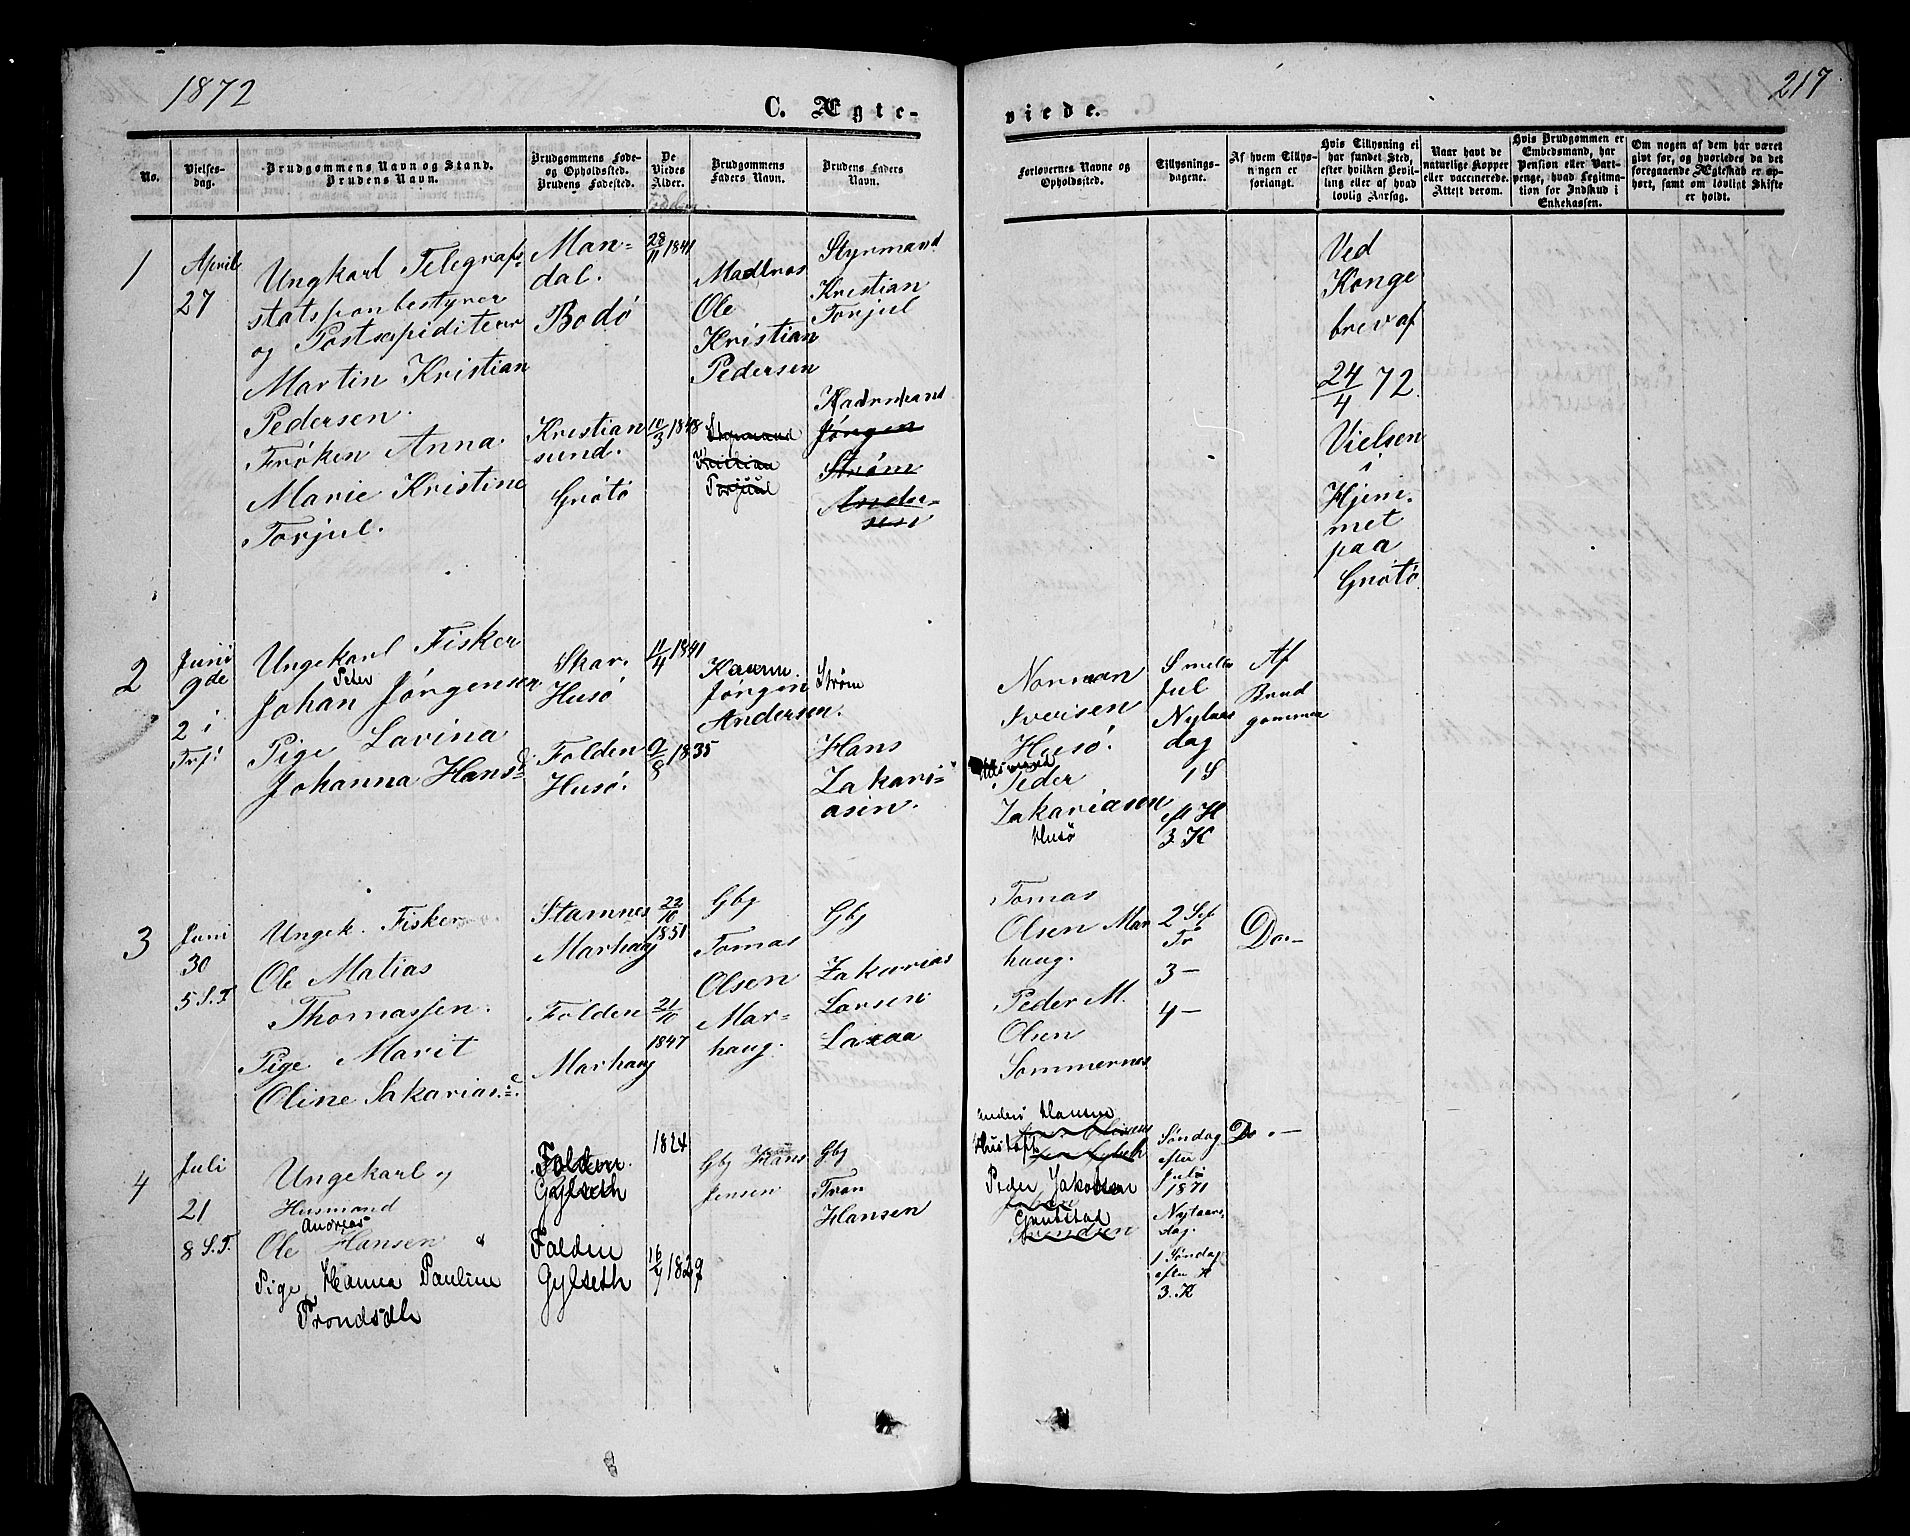 1872
217
C. Ægte-
viede.
No.
Vielses-
dag.
Brudgommens Navn og Stand.
Brudens Navn.
Brudgommens Føde-
og Opholdssted.
Brudens Fødested.
De
Viedes
Alder.
Brudgommens
Faders Navn.
Brudens Faders
Navn.
Forlovernes Navne og
Opholdssted.
Tillysnings-
dagene.
Af hvem Tillys-
ningen er
forlangt.
Hvis Tillysning ei
har fundet Sted,
efter hvilken Bevil-
ling eller af hvad
lovlig Aarsag.
Naar havt de
naturlige Kopper
eller vaccinerede.
Attest derom.
Hvis Brudgommen er
Embedsmand, har
Pension eller Vart-
penge, hvad Legitima-
tion for Indskud i
Enkekassen.
Om nogen af dem har været
gift før, og hvorledes da det
foregaaende Ægteskab er op-
hørt, samt om lovligt Skifte
er holdt.
1
April
27
Ungkarl Telegraf-
stationbestyrer
og Postexpediteur
Martin Kristian
Pedersen.
Frøken Anna
Marie Kristine
Torjul.
Man-
dal.
Bodø
Kristian
sund.
Grøtø
28/11 1841
10/3 1848
Madtros
Ole
Kristian
Pedersen
Styrmand
Kristian
Torjuul
Styrmand
Kristian
Torjul
Jørgen
Strøm
Ander-
sen
Ved
Konge
brev af
24/4 72.
Vielsen
i
Hjem-
met
paa
Grøtø
2
Juni
9de
2 i
Trf:
Ungekarl Fisker
Peter
Johan Jørgensen
Pige Lavina
Johanna Hansd.
Skar.
Husø
Folden
Husø.
11/4 1841
9/8 1835
Jørgen
Andersen.
Strøm
Hans
Zakari-
asen.
Norman
Iversen
Husø.
Husmand
Peder
Zakariasen
Husø
Smelle
Jul
Nytaars
dag
1 S
eft H
3. K
Af
Brud
gommen
3
Juni
30
5 S. T.
Ungek. Fisker
Ole Matias
Thomassen.
Pige Marit
Oline Sakariasd.
Stamnes
Marhaug
Folden
Marhaug
22/10
1851
21/10
1847
Gbj
Tomas
Olsen
Mar-
haug.
Gbj
Zakarias
Larsen
Laxaa
Tomas
Olsen Mar
haug.
Peder M.
Olsen
Sommernes
2 S ef
Tr
3 —
4 —
Do—
4
Juli
21
8 S. T.
Ungekarl og
Husmand
Andreas
Ole Hansen
Pige Hanna Pauline
Trondsdtr
Folden
Gylseth
Folden
Gylseth
1824
16/9 1829
Gbj Hans
Jensen
Gbj
Tron
Hansen
Anders Hansen
Peder Jakobsen
Søndag
efter
Juli
1871
Nytaars-
dag.
1 Søndag
efter H
3. K
Do —